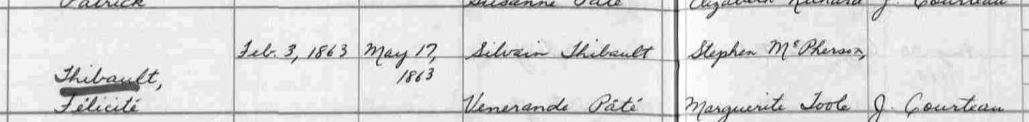 Patrick Susanne Pâté Elizabeth Richard J. Courteau
Feb. 3, 1863 May 17, Silvain Thibault Stephen McPherson,
Thibault, 1863
Félicité Venerande Pâté Marguerite Toole J. Courteau